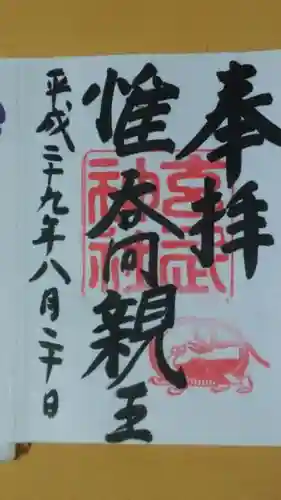 奉拝
惟喬親王
平成二十九年八月二十日
玄武
神社